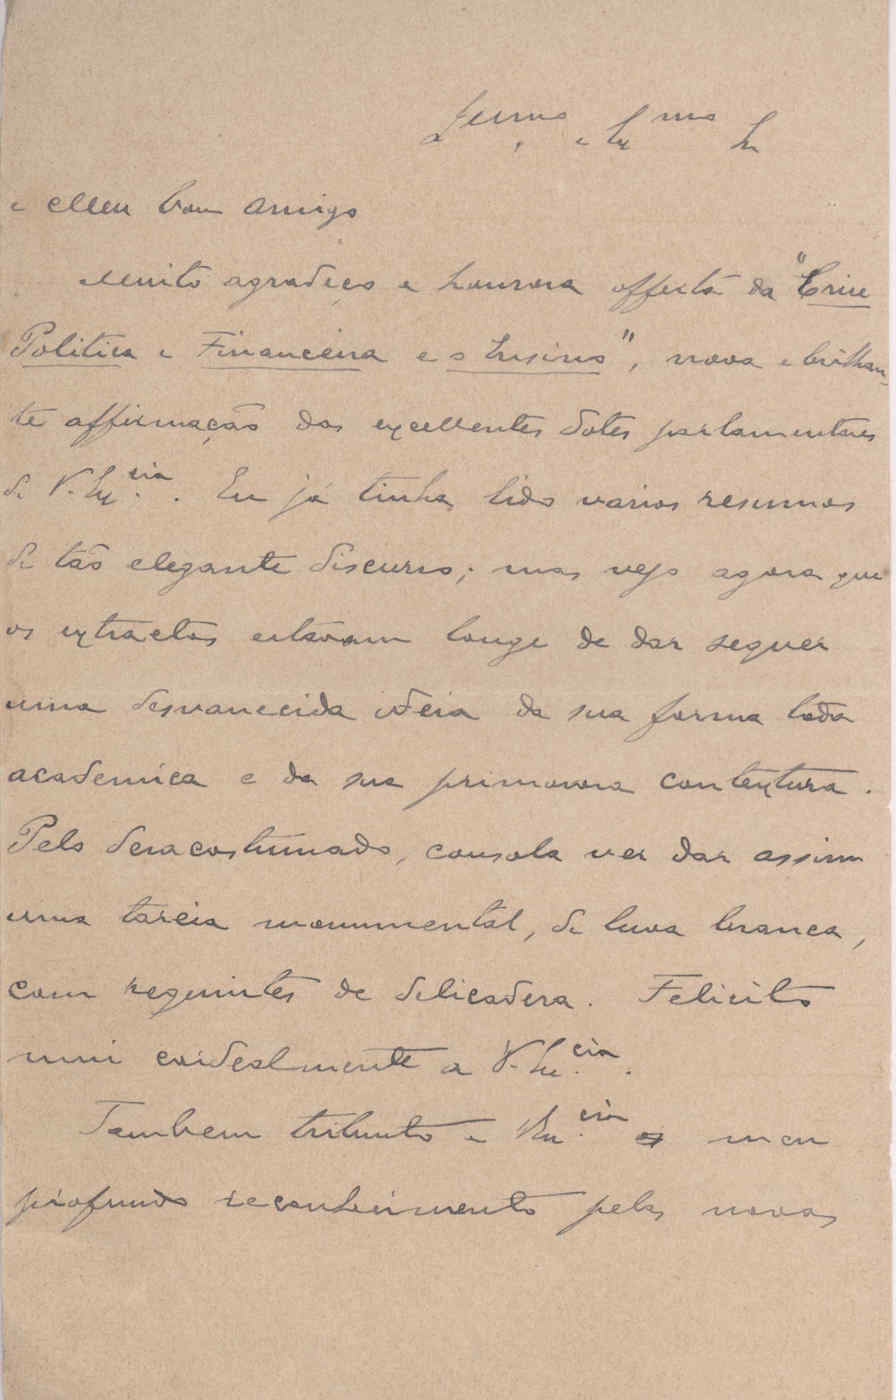 Illmo. e Exmo Sr
e Meu bom amigo
Muito agradeço a honrosa offerta da "Crise
Politica e Financeira e o Ensino", nova e brilhan-
te affirmação dos excellentes dotes parlamentares
de V. Excia. Eu já tinha lido varios resumos
de tão elegante discurso; mas vejo agora que
os extractos estavam longe de dar sequer
uma desvanecida ideia da sua forma toda
academica e da sua primorosa contextura.
Pelo desacostumado, consola ver dar assim
uma tareia monumental, de luva branca,
com requintes de delicadesa. Felicito
mui cordealmente a V. Excia.
Tambem tributo a V. Excia o meu
profundo reconhecimento pelas novas